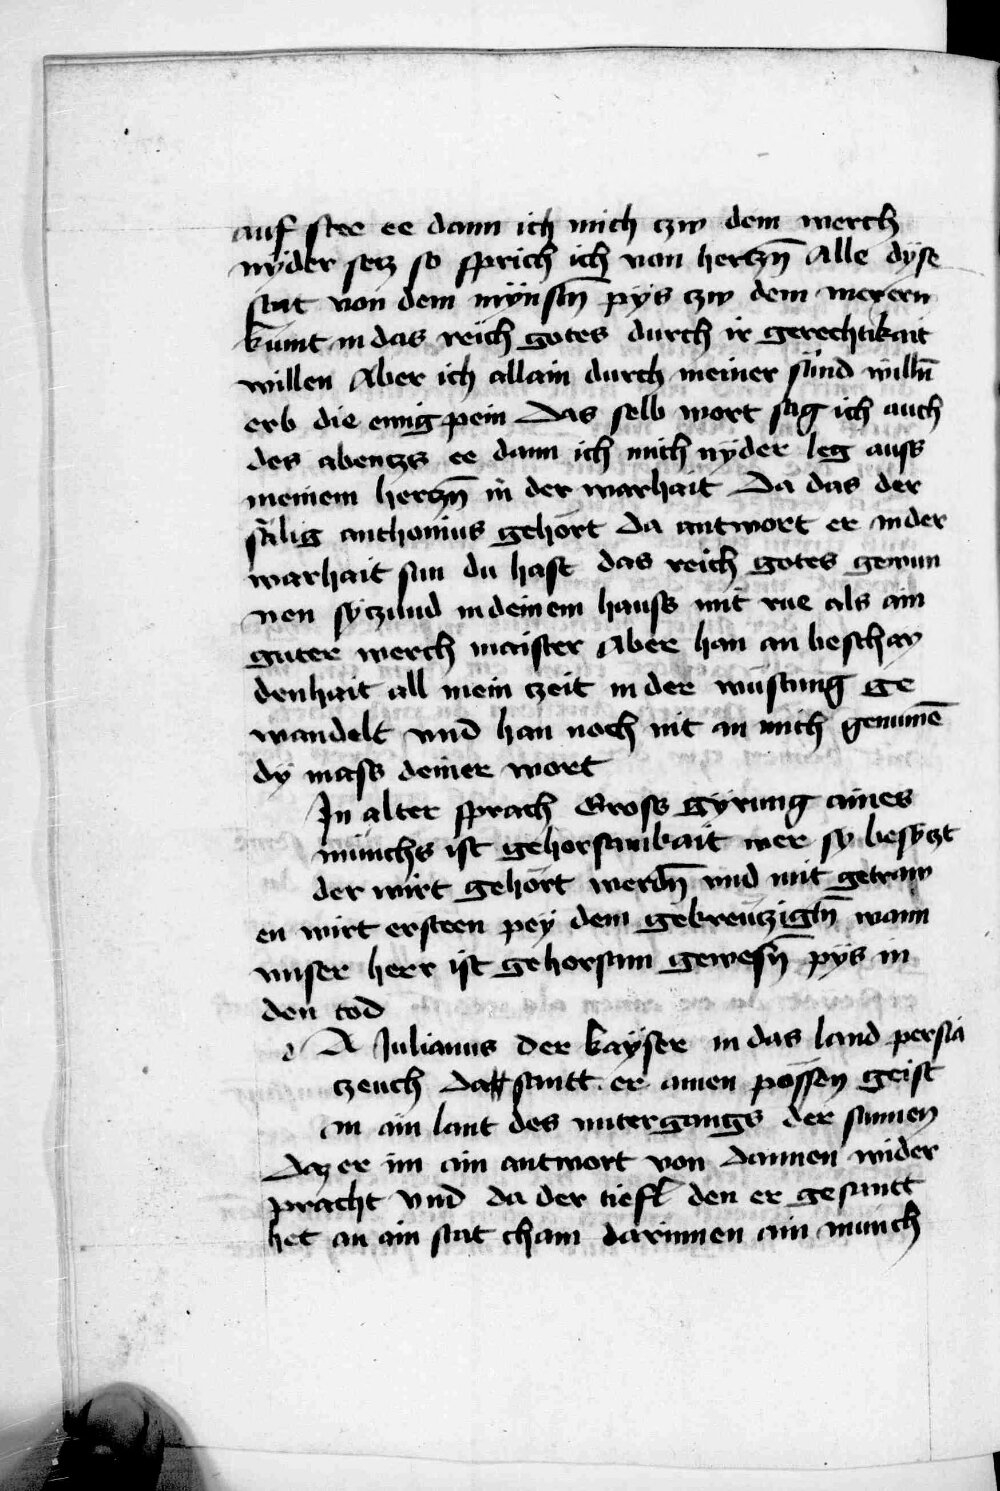 auf stee ee dann ich mich czw dem werch
nyder setz so sprich ich von hertzn̄ Alle dyse
stat von dem mynstn̄ pys czw dem merern
kumt in das reich gotes durch ir gerechtikait
willen Aber ich allain durch meiner sünd willn̄
erb die ewig pein Das selb wort sag ich auch
des abentzs ee dann ich mich nyder leg auss
meinem hertzn̄ in der warhait Da das der
sälig anthonius gehört da antwort er in der
warhait sun du hast das reich gotes gewun
nen sytzund in deinem hauss mit rue als ain
guter werch maister Aber han an beschay
denhait all mein zeit in der wüstung ge
wandelt vnd han noch nit an mich genumē
dy mass deiner wort
In alter sprach Gross gyrung aines
münchs ist gehorsamkait wer sy besytzt
der wirt gehört werdn̄ vnd mit getraw
en wirt ersteen pey dem gekreützigtn̄ wann
vnser herr ist gehorsam gewesn̄ pys in
den tod
d A Julianus der kayser in das land persia
zeuch Da santt er ainen possen geist
in ain lant des vntergangs der sunnen
Daz er im ain antwort von dannen wider
pracht vnd da der tiefl den er gesantt
het an ain stat cham darinnen ain münch